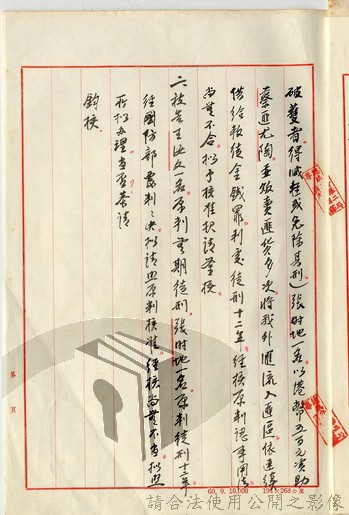 破獲者得減輕或免除其刑）張時地一名以港幣五百元資助
蔡匪尤陶並販賣匪貨多次將我外匯流入匪區依連續
供給叛徒金錢罪判處徒刑十二年經核原判認事用法
尚無不合擬予核准敬請鑒核
六、被告王 一名原判無期徒刑張時地一名原判徒刑十二年
經國防部覆判之決擬請照原判核准經核尚無不當擬照
所擬辦理當否恭請
鈞核
第 頁
60. 9. 10,000 194×268公厘
請合法使用公開之影像